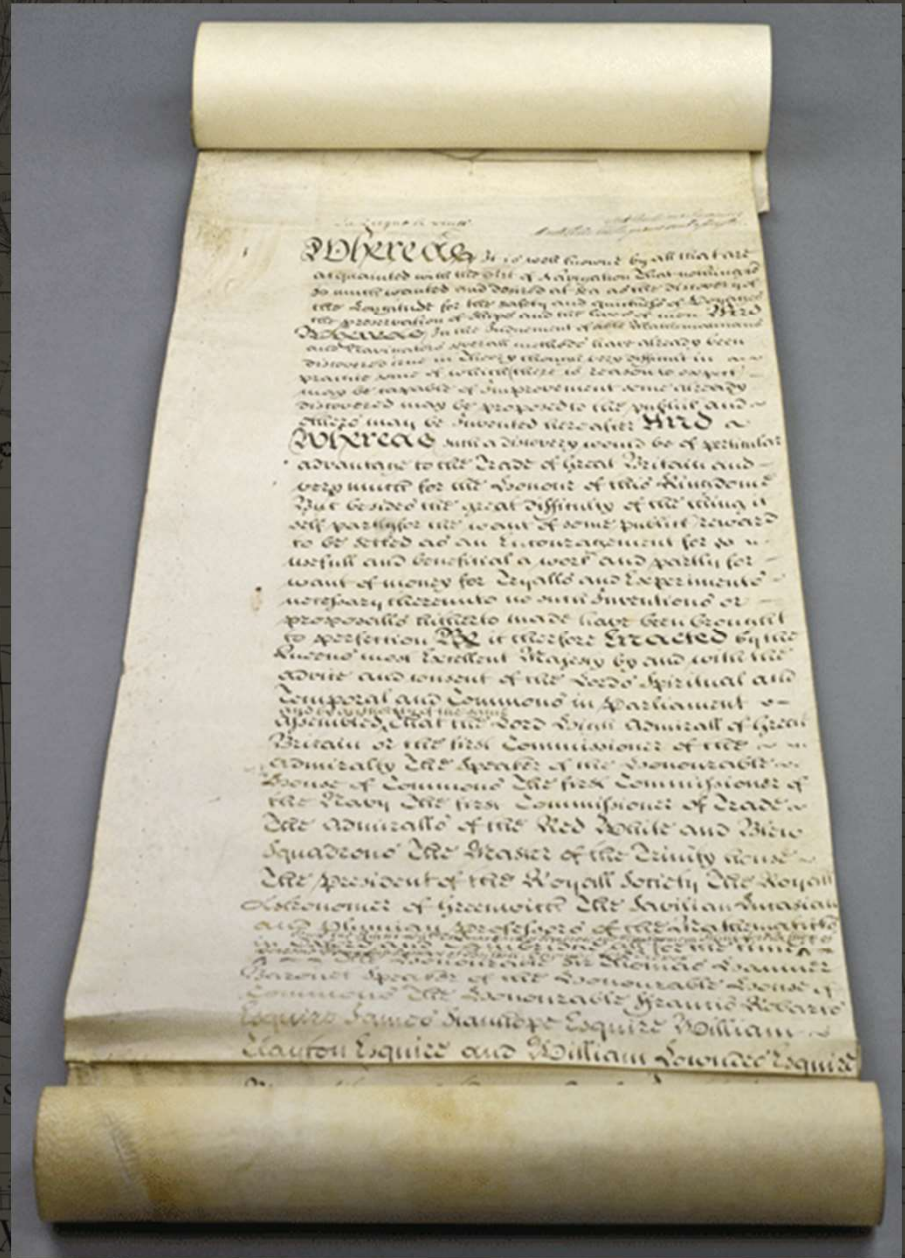 Whereas It is well knowne by all that are
acquainted with the Art of Navigation That nothing is
so much wanted and desired at Sea as the discovery of
the Longitude for the safety and quickness of Voyages
the preservation of Ships and the lives of men And
Whereas In the Judgment of able Mathematicians
and Navigators severall methods have already been
discovered true in Theory though very difficult in
practice some of which there is reason to expect
may be capable of Improvement some already
discovered may be proposed to the publick and
others may be Invented hereafter And
Whereas such a discovery would be of perticular
advantage to the Trade of Great Britain and
very much for the Honour of this Kingdome
But besides the great difficulty of the thing it
self partly for the want of some publick reward
to be setled as an Encouragement for so
usefull and beneficial a work and partly for
want of money for Tryalls and Experiments
necessary thereunto no such Inventions or
proposalls hitherto made have been brought
to perfection Be it therefore Enacted by the
Queens most Excellent Majesty by and with the
advice and consent of the Lords Spiritual and
Temporal and Commons in Parliament
and by authority of the same
Assembled That the Lord High Admirall of Great
Britain or the first Commissioner of the
Admiralty The Speaker of the Honourable
House of Commons The first Commissioner of
the Navy The first Commissioner of Trade
The Admiralls of the Red White and Blew
Squadrons The Master of the Trinity house
The President of the Royall Society The Royall
Astronomer of Greenwich The Savilian Lucasian
and Plumian professors of the Mathematicks
in Oxford and Cambridge all for the time
The Honourable Sir Thomas Hanmer
Baronet Speaker of the Honourable House of
Commons The Honourable Francis Robarts
Esquire James Stanhope Esquire William
Clayton Esquire and William Lowndes Esquire